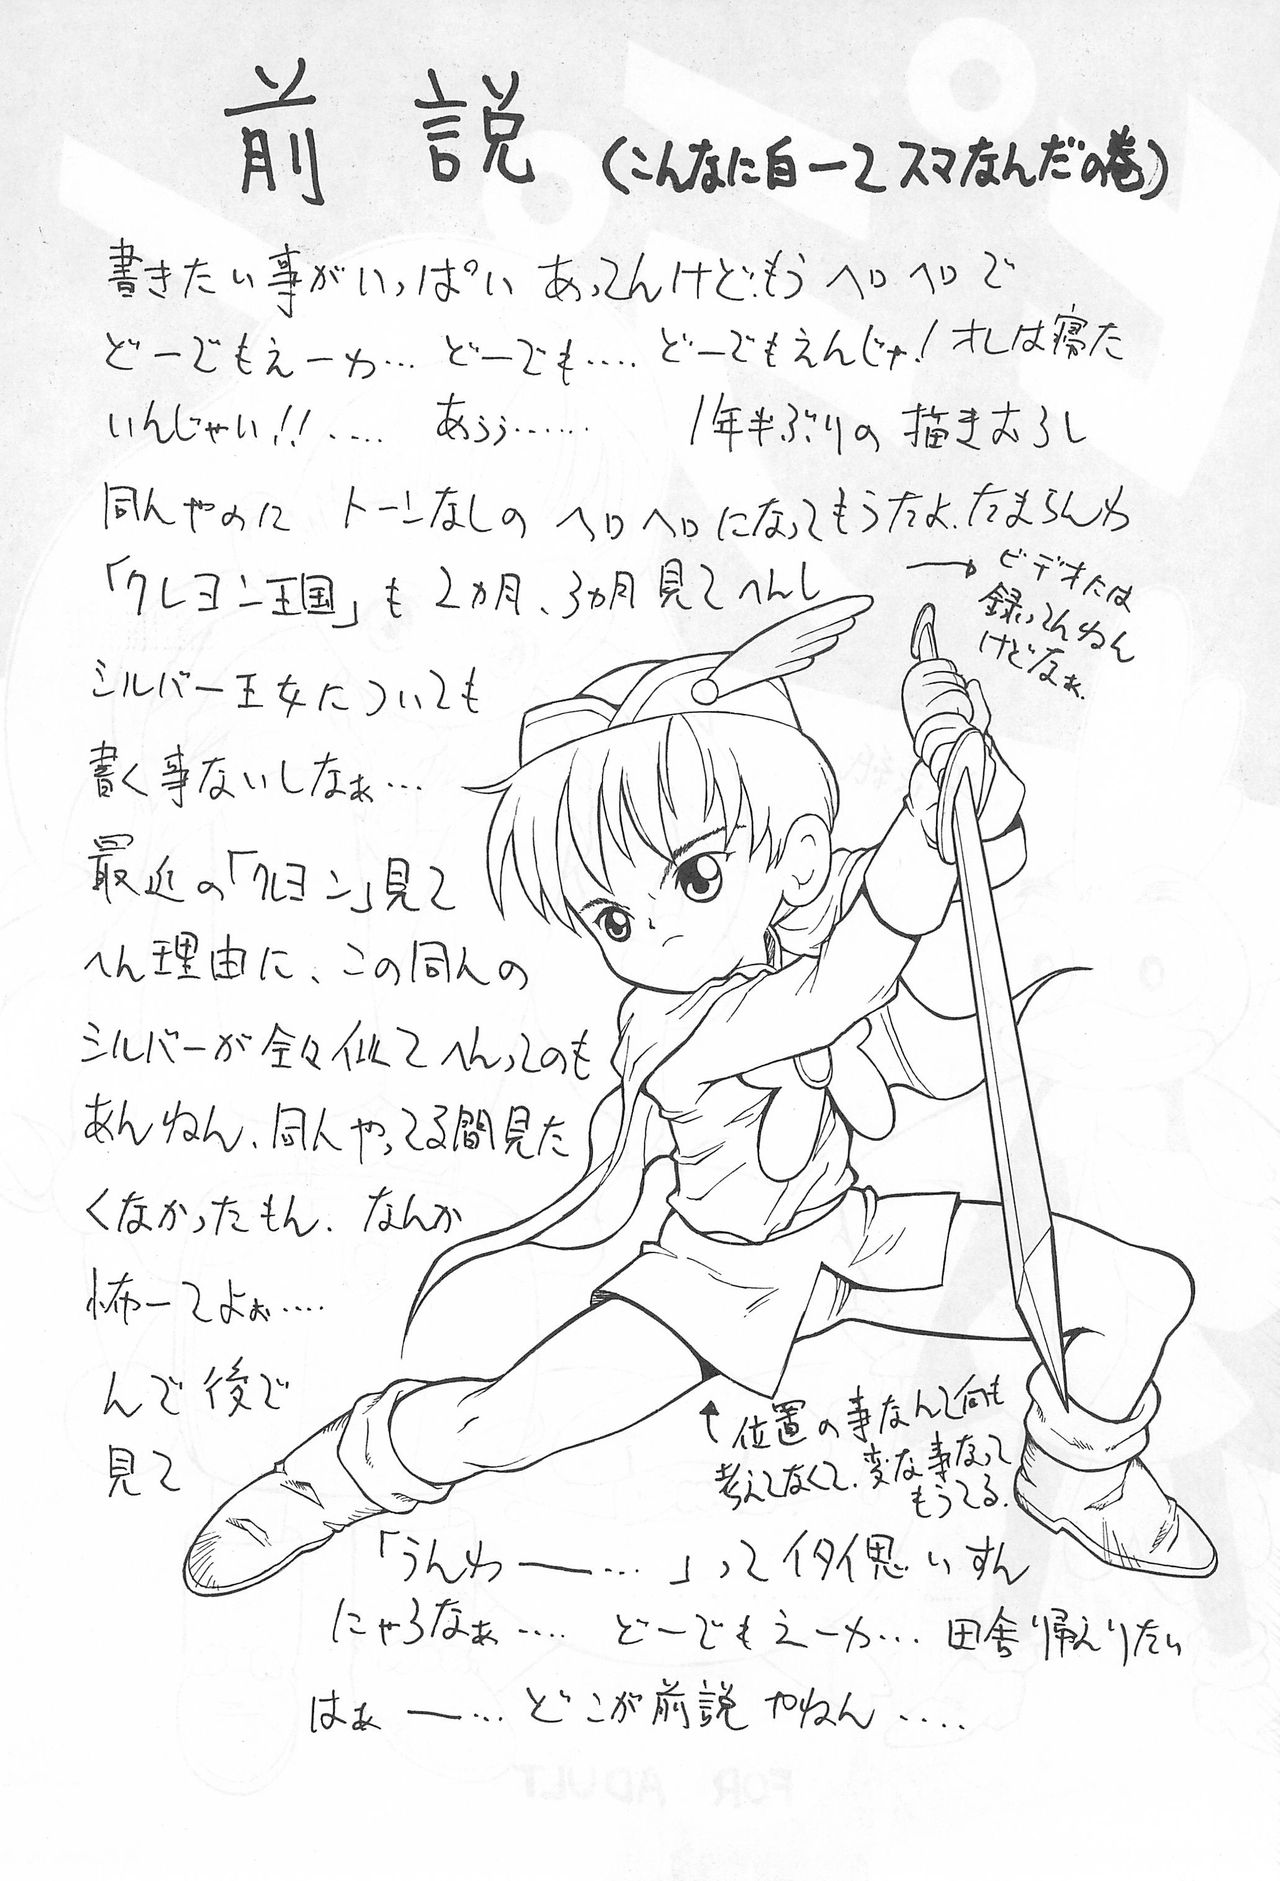 前説 (こんなに白ーてスマなんだの巻)
書きたい事がいっぱい あってんけど、もう ヘロヘロで
どーでもえーわ… どーでも…. どーでもえんじゃ! オレは寝た
いんじゃい!!.... あぅぅ…… 1年半ぶりの 描きおろし
同人やのに トーンなしの ヘロヘロになってもうたよ.たまらんわ
「クレヨン王国」も 2ヵ月、3ヵ月 見てへんし
→ ビデオには
録ってんねん
けどなぁ.
シルバー王女についても
書く事ないしなぁ…
最近の「クレヨン」見て
へん理由に、この同人の
シルバーが全々似てへんってのも
あんねん、同人やってる間見た
くなかったもん. なんか
怖ーてよぉ….
んで後で
見て
↑位置の事なんて何も
考えてなくて、変な事なって
もうてる.
「うんわ――… 」って イタイ思いすん
にゃろなぁ…. どーでもえーわ… 田舎り帰えりたい
はぁ ー… どこが前説やねん ....
FOR ADULT